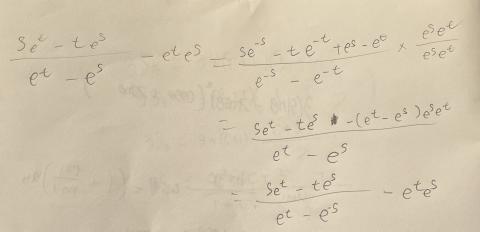 (se^t - te^s)/(e^t - e^s) - e^t e^s = (se^-s - te^-t + e^s - e^t)/(e^-s - e^-t) × (e^s e^t)/(e^s e^t)
= (se^t - te^s - (e^t - e^s)e^s e^t)/(e^t - e^s)
= (se^t - te^s)/(e^t - e^-s) - e^t e^s